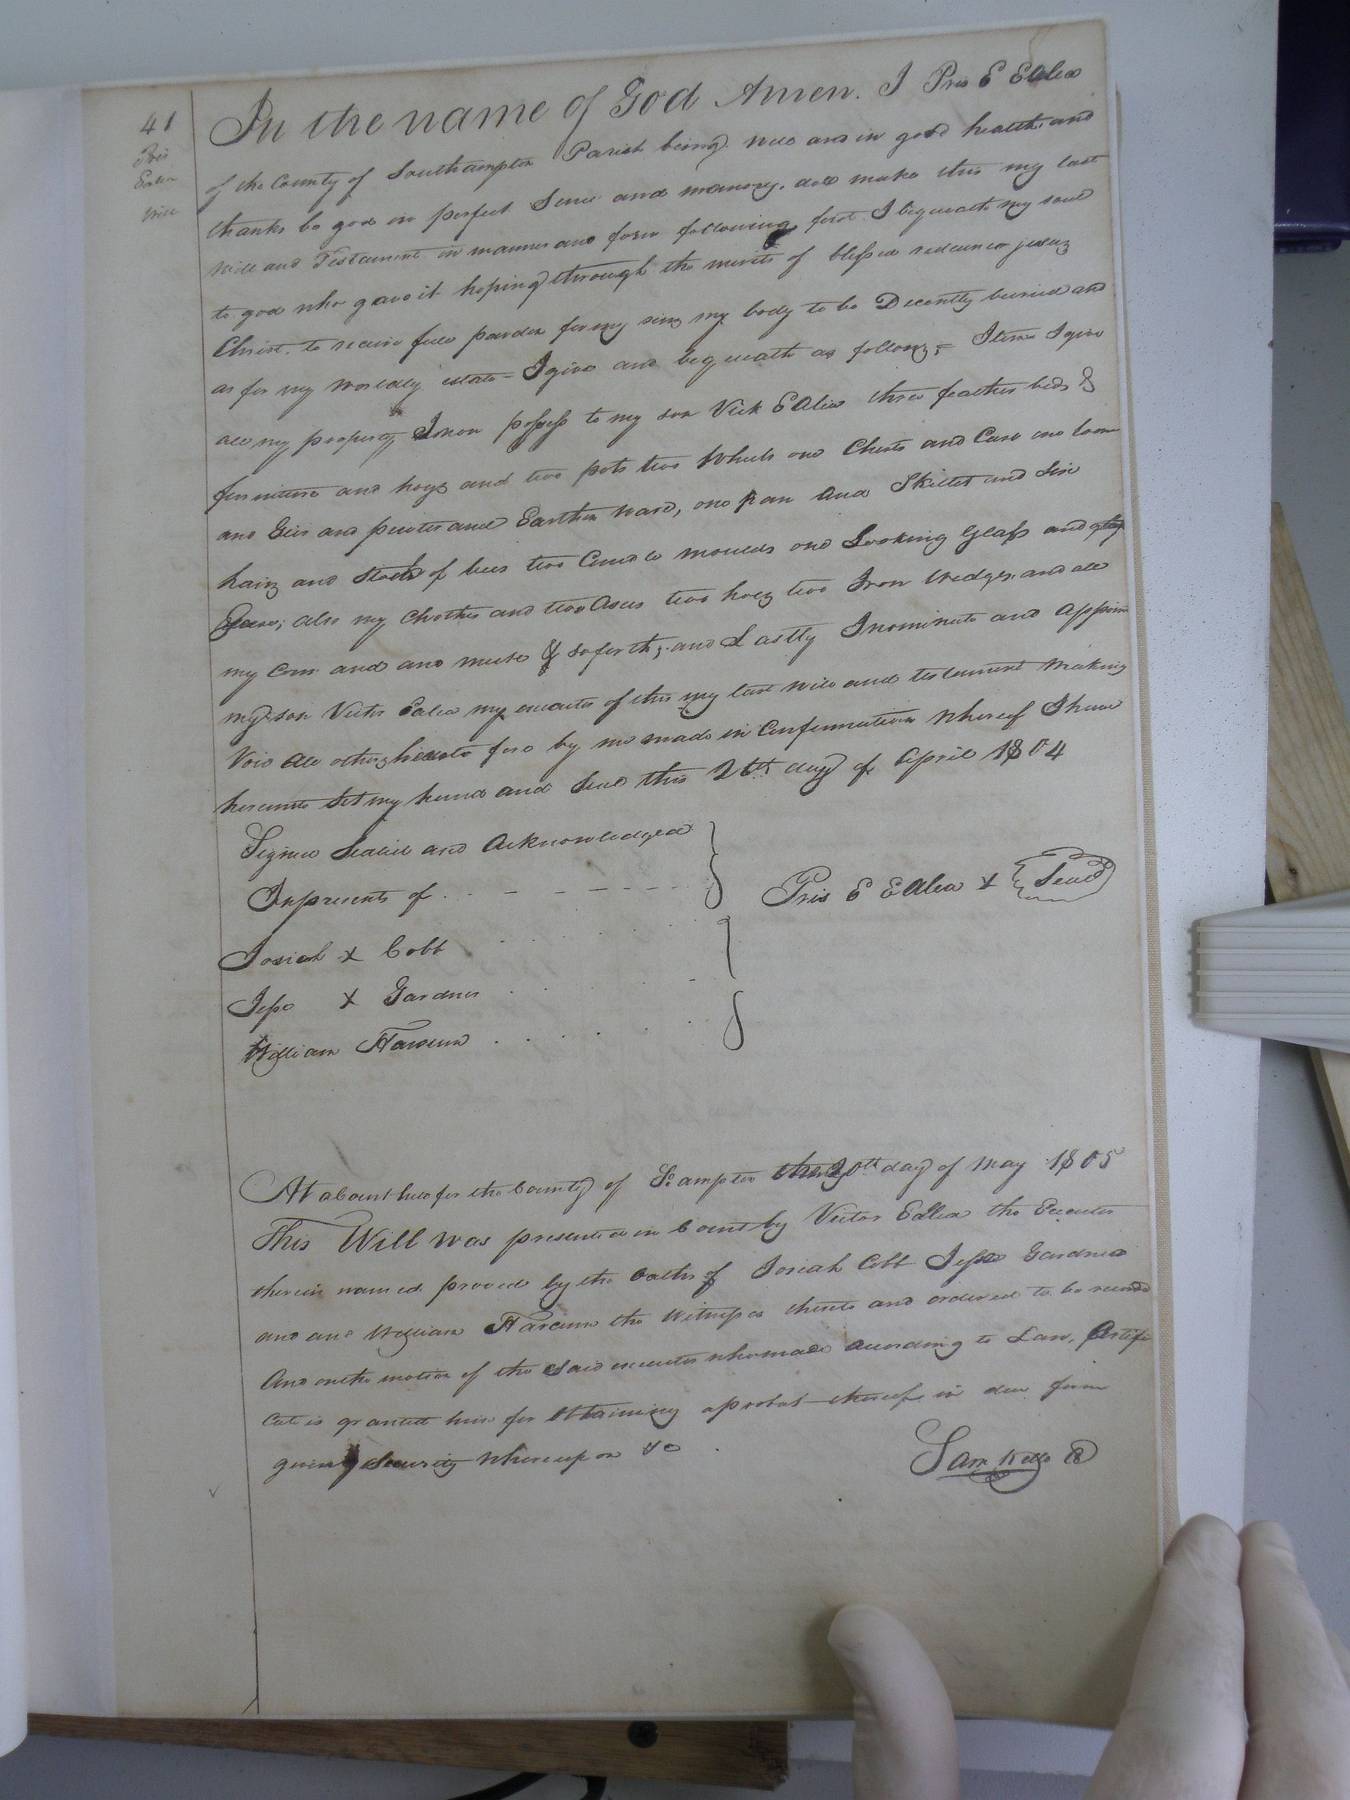 41
Pris
Ealea
Will
In the name of God Amen. I Pris E Ealea
of the County of Southampton Parish being well and in good health and
thanks be god in perfect Sence and memory. doo make this my last
will and Testament in manner and form following, first I bequeath my soul
to god who gave it hoping through the merits of blessed redeemer jesus
Christ. to receive full pardon for my sins my body to be Decently buried and
as for my worldly estate I give and bequeath as follows; Item I give
all my property I now possess to my son Vick Ealea three feather beds &
furniture and hogs and two pots two Wheels one Chests and Case one loom
and Geer and pewter and Earthen ward, one pan and Skillet and Six
hairs and Stock of bees two Candle moulds one Looking Glass and
also my Clothes and two Axes two hoes two Iron Wedges and all
my corn and and meete & so forth; and Lastly I nominate and appoin
my son Victor Ealea my executor of this my last will and testament Making
Void all others heretofore by me made in Confirmation whereof I have
hereunto Set my hand and Seal this 26th day of April 1804
Signed Sealed and Acknowledged
In presents of
Pris E Ealea X Seal
Josiah X Cobb
Jesse X Gardner
William Harcum
At a Court held for the County of So.ampton the 20th day of May 1805
This Will was presented in Court by Victor Ealea the Executor
therein named proved by the oaths of Josiah Cobb Jesse Gardner
and and William Harcum the Witnesses thereto and ordered to be record
And on the motion of the Said executor who made According to Law, Certifi
Cate is granted him for Obtaining a probat thereof in due form
giveing Security Whereupon &c
Sam Kello C